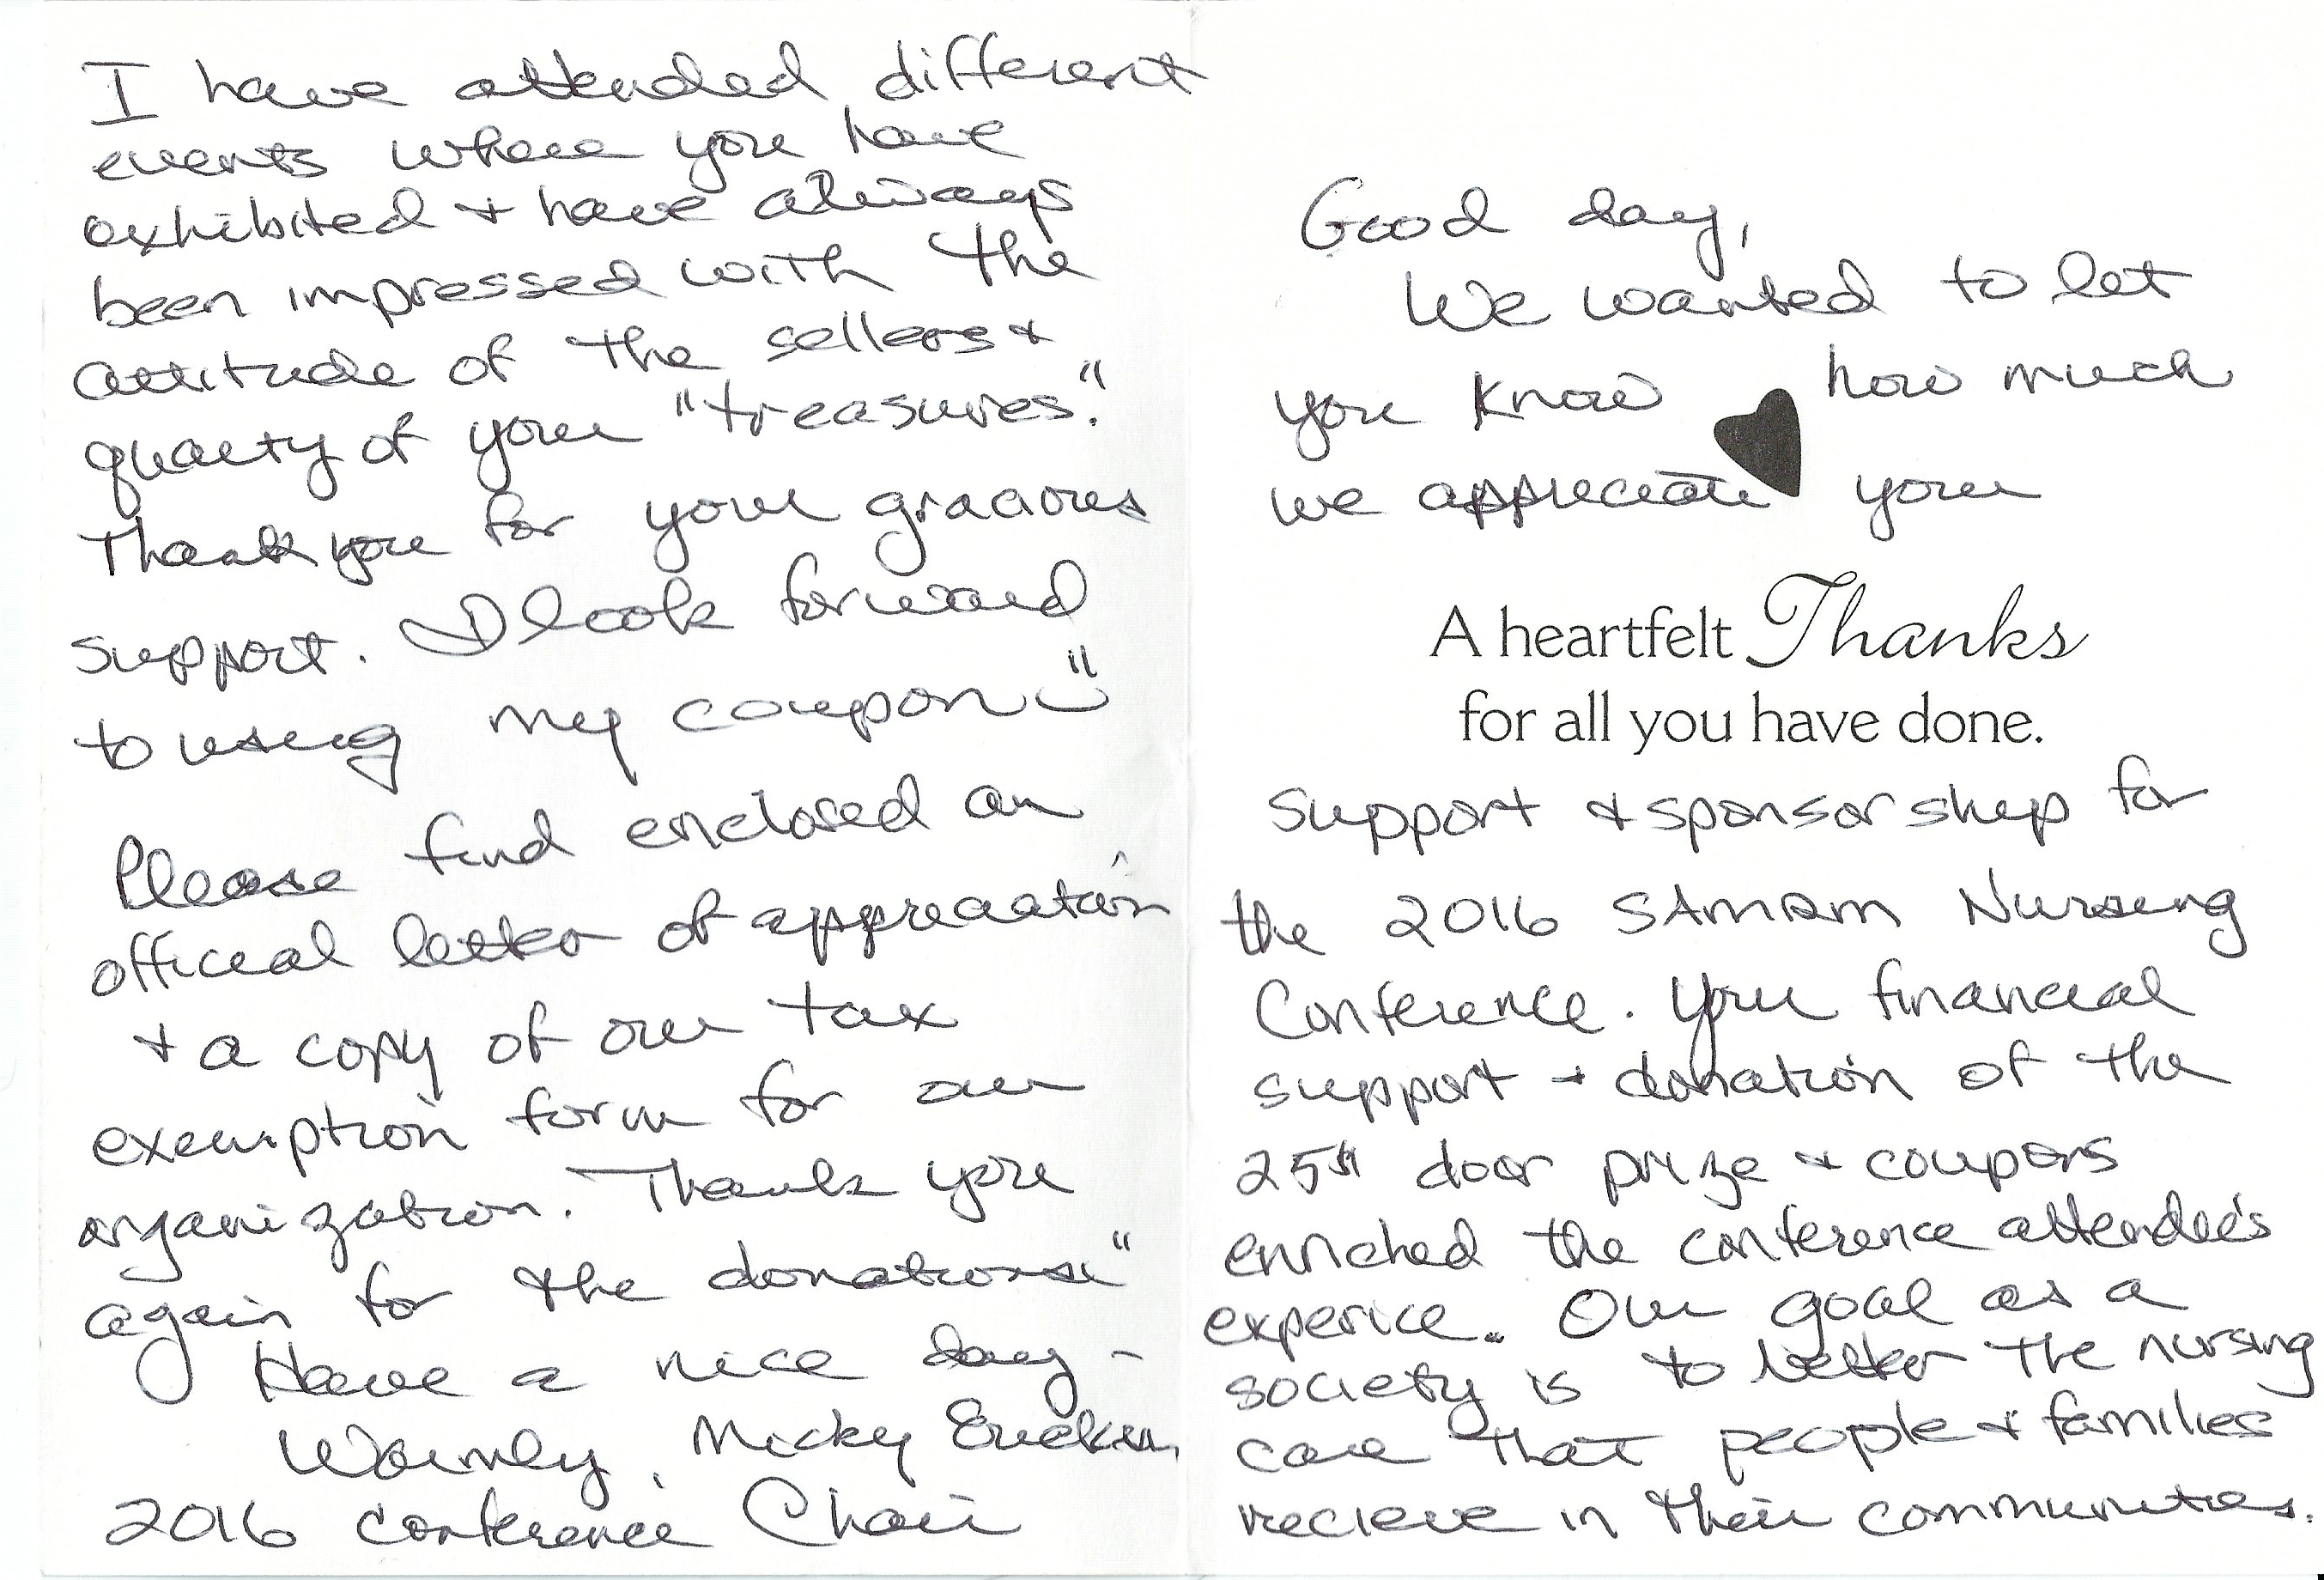 Good day,
We wanted to let
you know how much
we appreciate your
A heartfelt Thanks
for all you have done.
support & sponsorship for
the 2016 Nursing
Conference. Your financial
support + donation of the
door prize & coupons
enriched the conference attendee's
experice. Our goal as a
society is to better the nursing
care that people & families
recieve in their communities.
I have attended different
events where you have
exhibited & have always
been impressed with the
attitude of the sellers &
quaity of your "treasures."
Thank you for your gracious
support. I look forward
to using my coupon
Please find enclosed an
official letter of appreciation
& a copy of our tax
exemption form for our
organization. Thank you
again for the donations
Have a nice day -
Warmly, Micky Erickson,
2016 Conference Chair